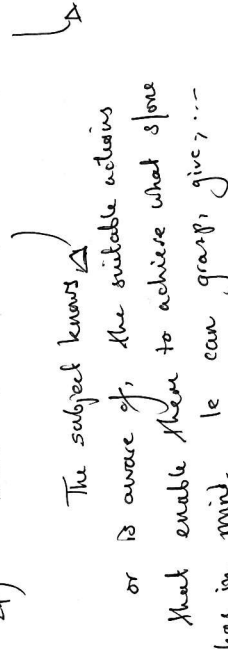 4)
The subject knows
or is aware of, the suitable actions
that enable them to achieve what s/one
has in mind. Ie can grasp, give, ...